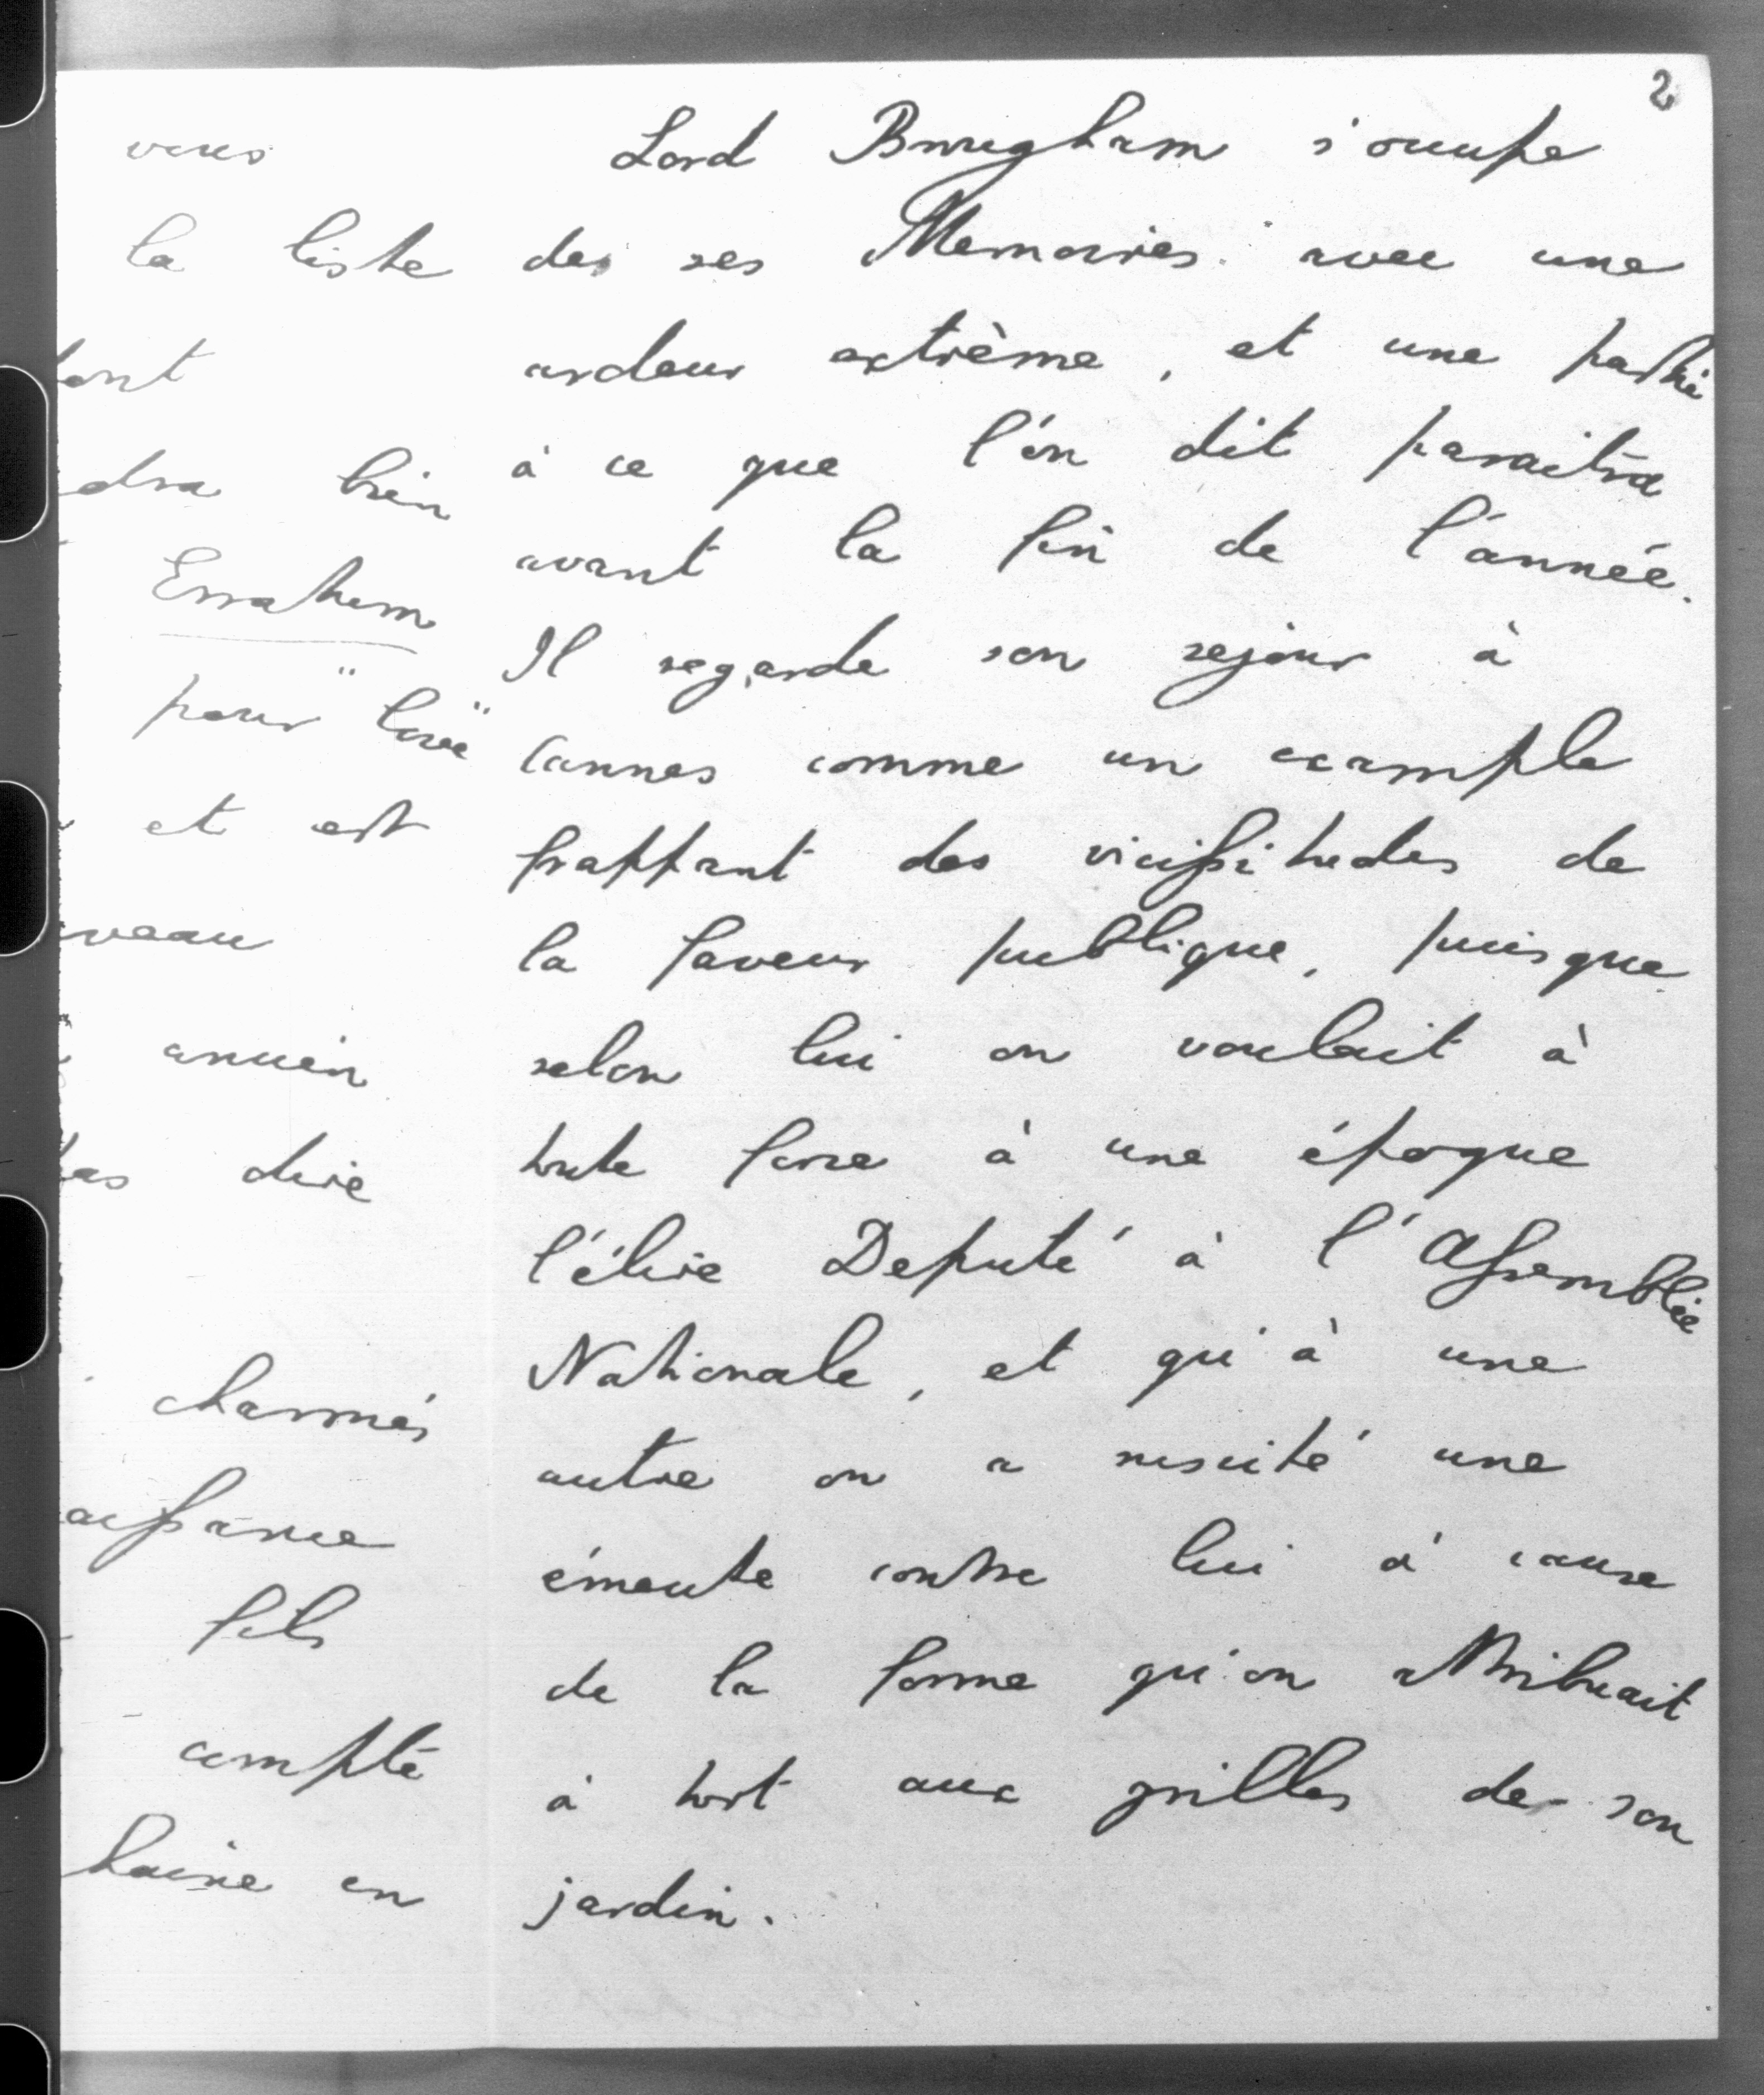 2
vous
la liste
dra bien
Erratum
pour
et est
veau
ancien
dire
charmés
fils
compté
haine en
Lord Brougham s'occupe
des ses Memoires avec une
ardeur extrème, et une partie
à ce que l'on dit paraitra
avant la fin de l'année.
Il regarde son sejour à
Cannes comme un exemple
frappant des vicissitudes de
la faveur publique, puisque
selon lui on voulait à
toute force à une époque
l'élire Deputé à l'Assemblée
Nationale, et qu'à une
autre on a suscité une
émeute contre lui à cause
de la forme qu'on attribuait
à tort aux grilles de son
jardin.